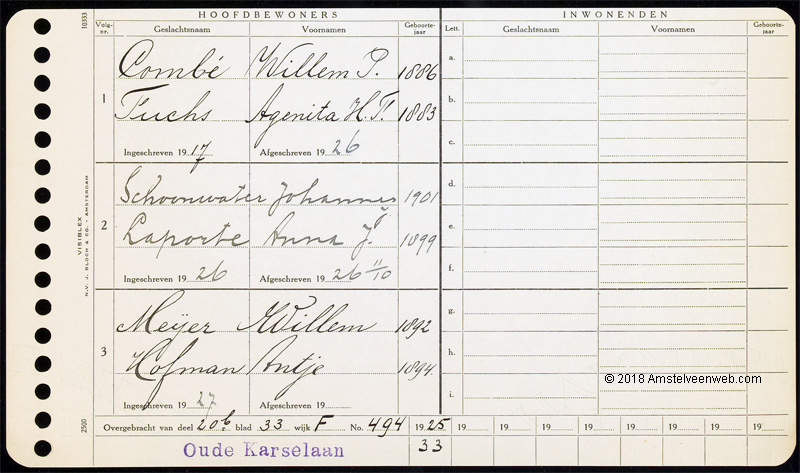 HOOFDBEWONERS INWONENDEN
Volg-nr. Geslachtsnaam Voornamen Geboorte-jaar Lett. Geslachtsnaam Voornamen Geboorte-jaar
1
Combé Willem P. 1886
Fuchs Agenita H.F. 1883
Ingeschreven 1917 Afgeschreven 1926
2
Schoonwater Johannes 1901
Laporte Anna J. 1899
Ingeschreven 1926 Afgeschreven 1926 11/10
3
Meijer Willem 1892
Hofman Antje 1894.
Ingeschreven 1927 Afgeschreven 19
a.
b.
c.
d.
e.
f.
g.
h.
i.
Overgebracht van deel 20b blad 33 wijk F No. 494 1925 19 19 19 19 19 19 19
Oude Karselaan 33
10333
VISIBLEX
N.V. J. BLOCH & CO. - AMSTERDAM
2500
© 2018 Amstelveenweb.com